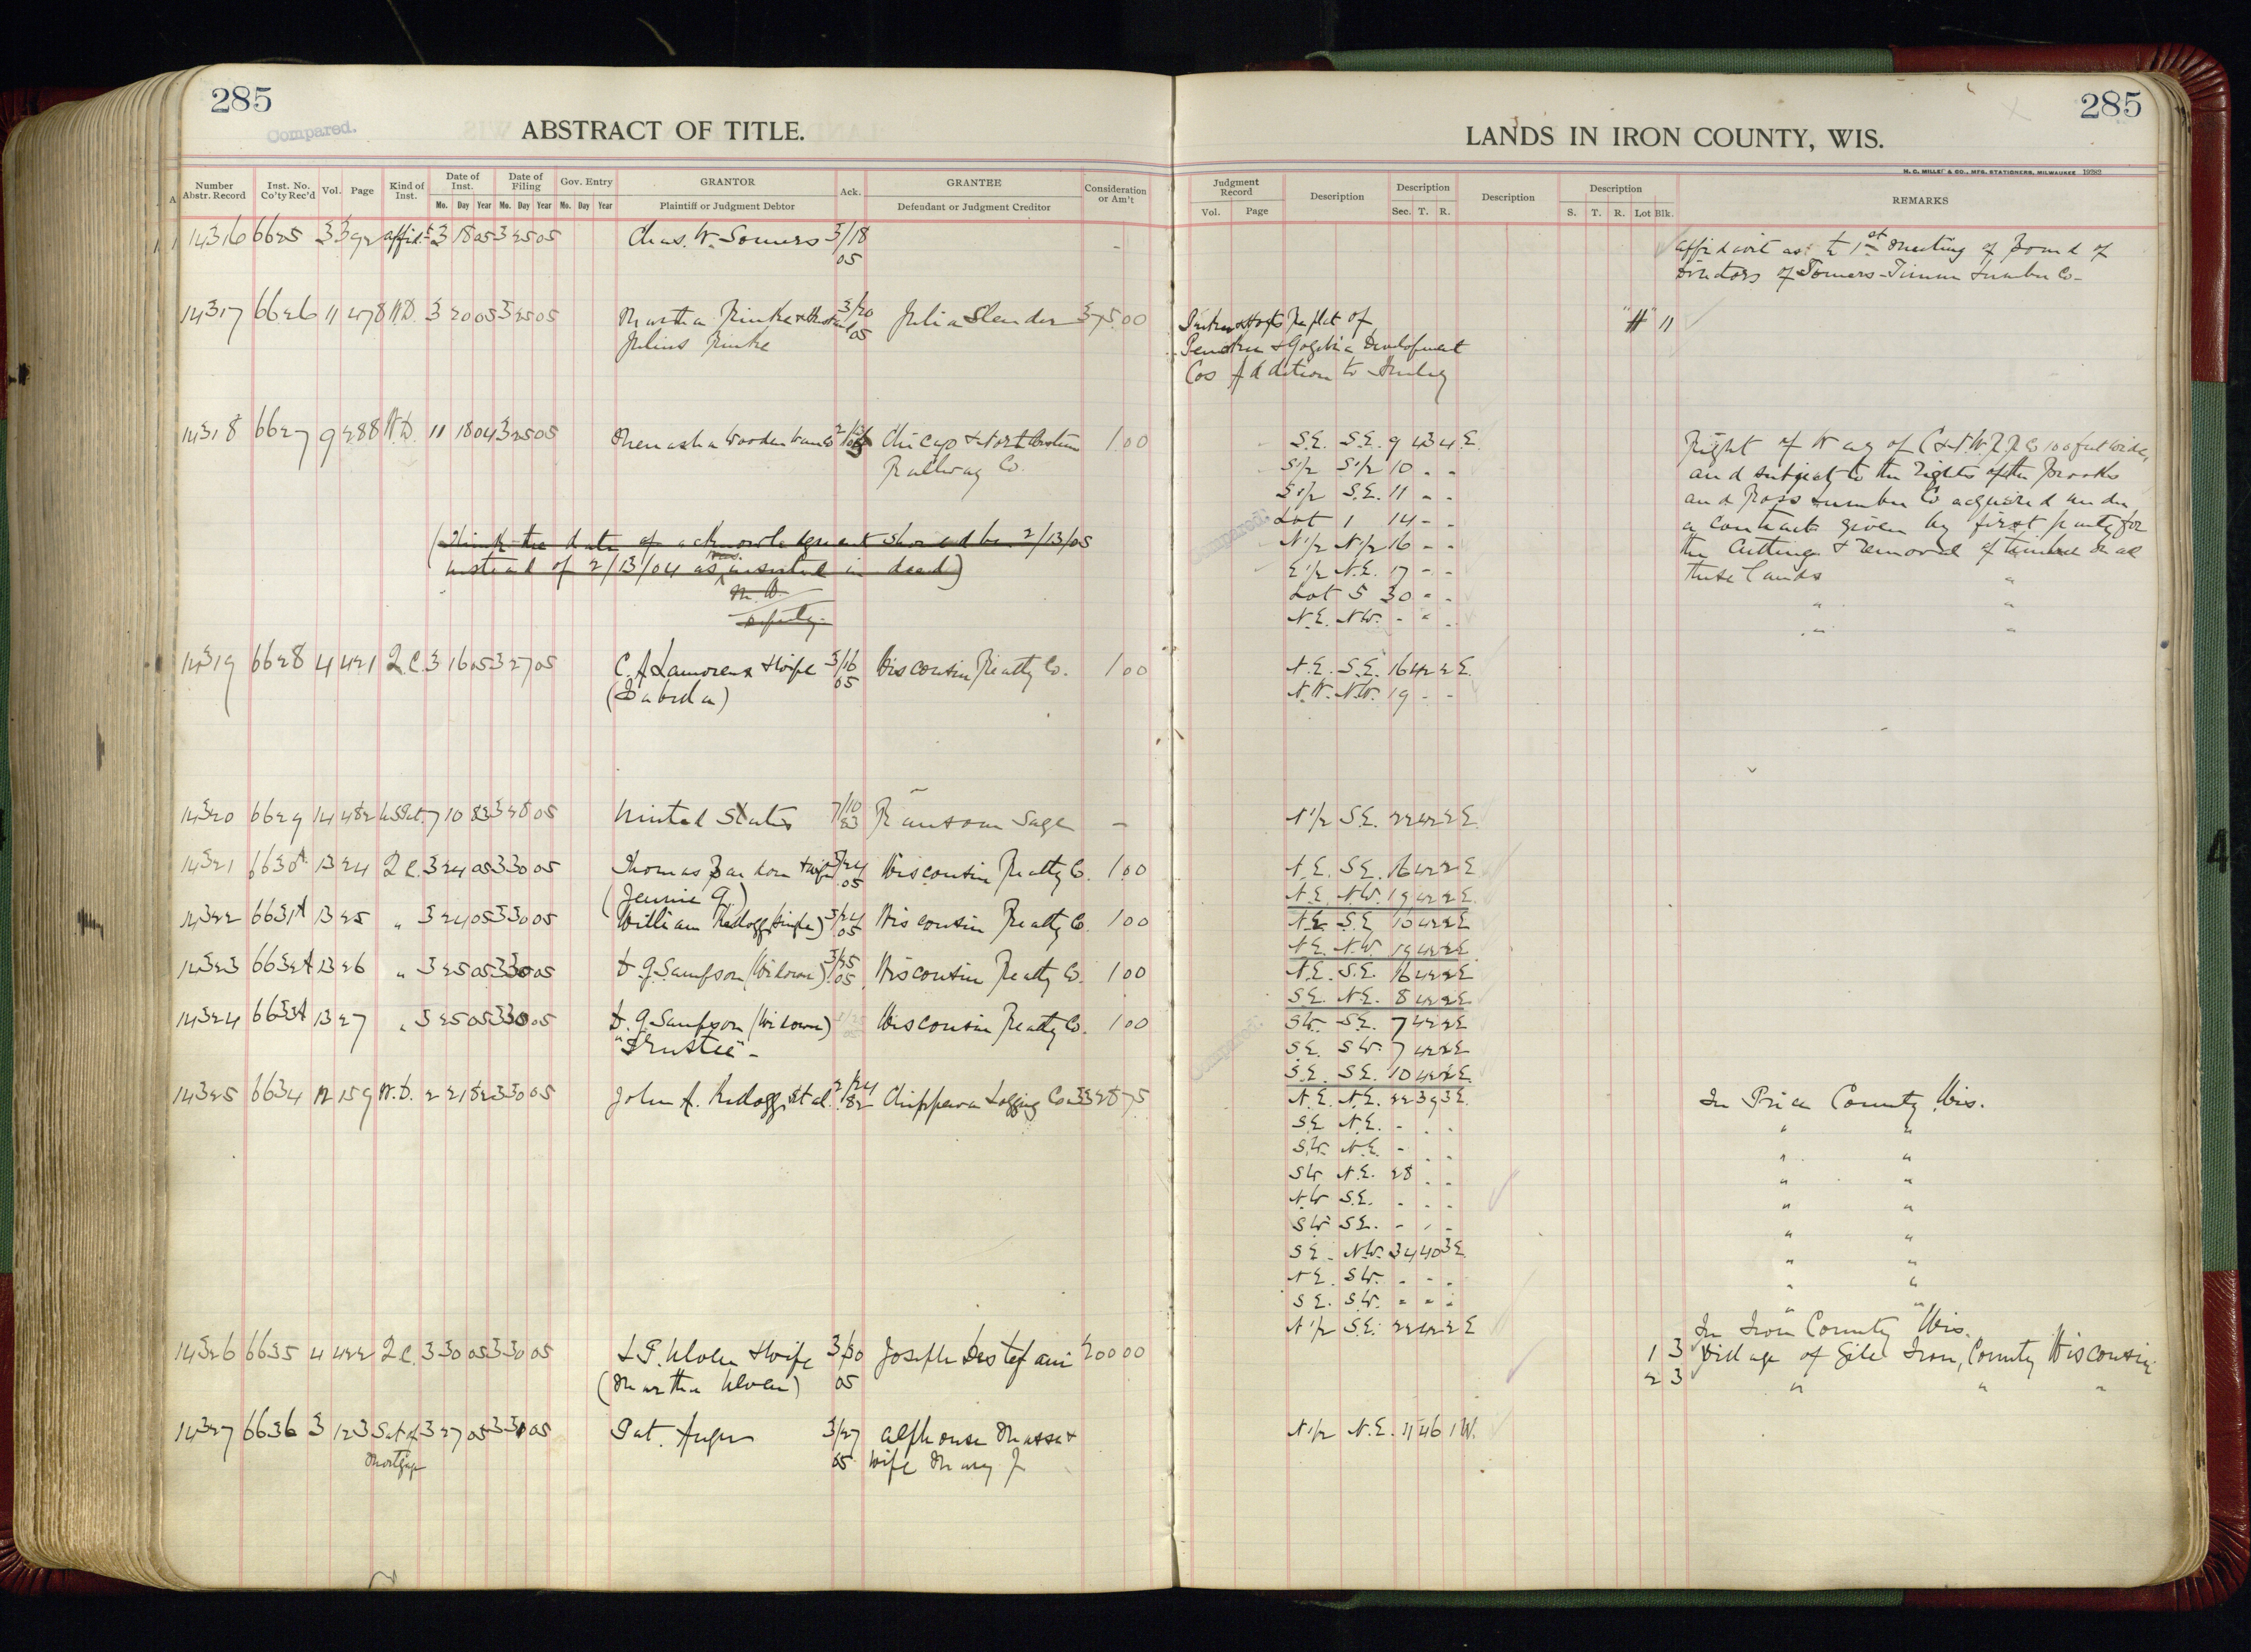 285
Compared.
ABSTRACT OF TITLE.
Number Abstr. Record Inst. No. Co'ty Rec'd Vol. Page Kind of Inst. Date of Inst. Mo. Day Year Date of Filing Mo. Day Year Gov. Entry Mo. Day Year GRANTOR Plaintiff or Judgment Debtor Ack. GRANTEE Defendant or Judgment Creditor Consideration or Am't
14316 6625 3 392 Affid't 3 18 05 3 25 05 Chas. W. Somers 3/18
05
14317 6626 11 478 W.D. 3 20 05 3 25 05 Martha Rinke & Husband 3/20 Julia Slender 375.00
Julius Rinke 05
14318 6627 9 288 W.D. 11 18 04 3 25 05 Menasha Wooden Ware Co Chicago & Northwestern 1.00
Railway Co.
(Think the date of acknowledgment should be 2/13/05
instead of 2/13/04 as inserted in deed)
Deputy.
14319 6628 4 421 Q.C. 3 16 05 3 27 05 C. A. Lamoreux & Wife 3/16 Wisconsin Realty Co. 1 00
05
14320 6629 14 482 U.S.Pat. 7 10 83 3 28 05 United States 7/10 Ransom Sage —
83
14321 6630A 13 24 Q.C. 3 24 05 3 30 05 Thomas Bardon & Wife 3/24 Wisconsin Realty Co. 1.00
(Jennie G.) 05
14322 6631A 13 25 " 3 24 05 3 30 05 William Kellogg (Single) 3/24 Wisconsin Realty Co. 1 00
05
14323 6632A 13 26 " 3 25 05 3 30 05 D. G. Sampson (Widower) 3/25 Wisconsin Realty Co. 1 00
05
14324 6633A 13 27 " 3 25 05 3 30 05 D. G. Sampson (Widower) 3/25 Wisconsin Realty Co. 1 00
"Trustee"- 05
14325 6634 12 159 W.D. 2 21 82 3 30 05 John A. Kellogg et al. 2/24 Chippewa Logging Co
82
14326 6635 4 422 Q.C. 3 30 05 3 30 05 3/30 Joseph Des tefani 200 00
05
14327 6636 3 123 Sat. of 3 27 05 3 31 05 Pat. Auger 3/27 Alphonse Massa &
Mortgage 05 wife Mary J
285
LANDS IN IRON COUNTY, WIS.
H. C. MILLER CO., MFG. STATIONERS, MILWAUKEE 19282
Judgment Record Vol. Page Description Description Sec. T. R. Description Description S. T. R. Lot Blk. REMARKS
Affidavit as to 1st Meeting of Board of
Directors of Somers-Timm Lumber Co-
Replat of "H" 11
Penokee & Gogebic Development
Cos Addition to Hurley
S.E. S.E. 9 43 4 E. Right of Way of C & N.W.R.R Co 100 feet wide,
S1/2 S1/2 10 " " and subject to the rights of the Brooks
S1/2 S.E. 11 " " and Ross Lumber Co acquired under
Compared.
Lot 1 14 " " a contract given by first party for
N1/2 N1/2 16 " " the cutting & removal of timber on all
E1/2 N.E. 17 " " these lands "
Lot 5 30 " " " "
N.E. N.W. " " " " "
N.E. S.E. 16 42 2 E.
N.W. N.W. 19 " "
N1/2 S.E. 22 42 2 E.
N.E. S.E. 16 42 2 E.
N.E. N.W. 19 42 2 E.
N.E. S.E. 16 42 2 E
N.E. N.W. 19 42 2 E
N.E. S.E. 16 42 2 E
S.E. N.E. 8 42 2 E
Compared.
S.W. S.E. 7 42 2 E
S.E. S.W. 7 42 2 E
S.E. S.E. 10 42 2 E
N.E. N.E. 22 39 3 E. In Price County Wis.
S.E. N.E. " " " " "
S.W. N.E. " " " " "
S.W. N.E. 28 " " " "
N.W. S.E. " " " " "
S.W. S.E. " " " " "
S.E. N.W. 34 40 3 E. " "
N.E. S.W. " " " " "
S.E. S.W. " " " " "
N1/2 S.E. 22 42 2 E In Iron County Wis.
1 3 Village of Gile Iron, County Wisconsin
2 3 " " "
N1/2 N.E. 11 46 1 W.